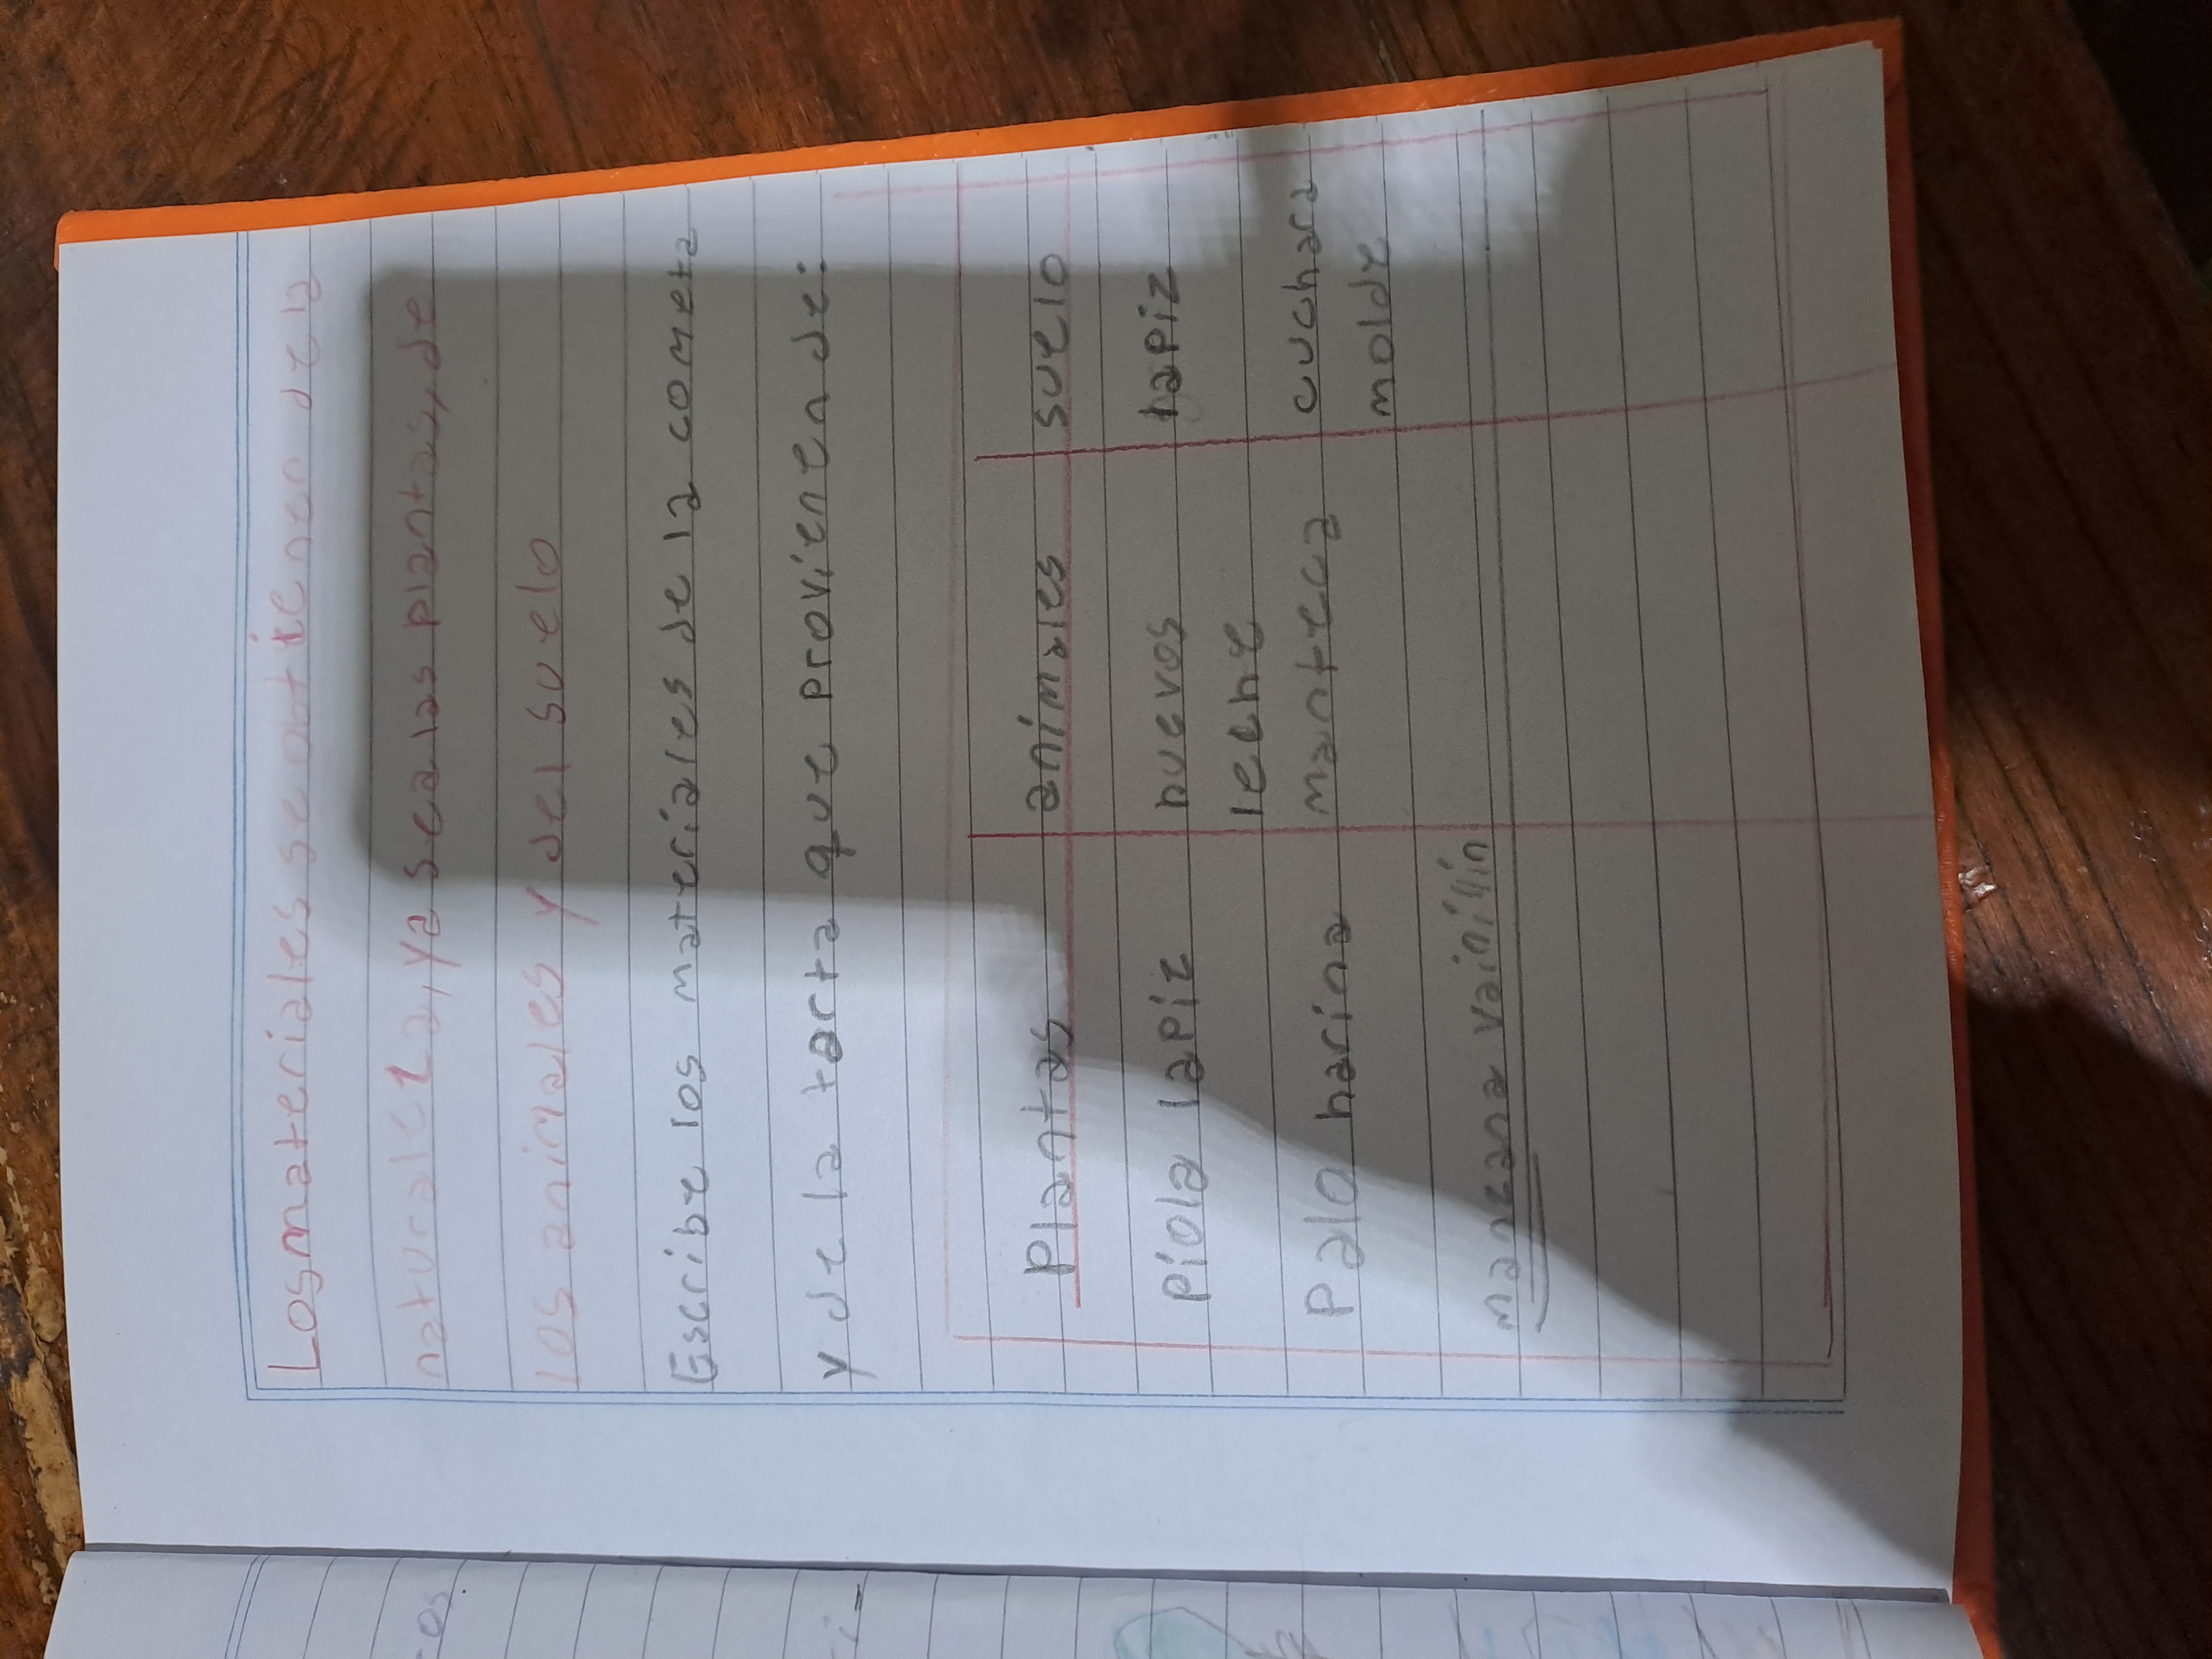 Los materiales se obtienen de la
naturaleza, ya sea las plantas, de
los animales y del suelo
Escribe los materiales de la cometa
y de la tarta que provienen de:
Plantas animales suelo
Piola lapiz huevos lapiz
leche
Palo harina manteca cuchara
molde
manzana vainillin